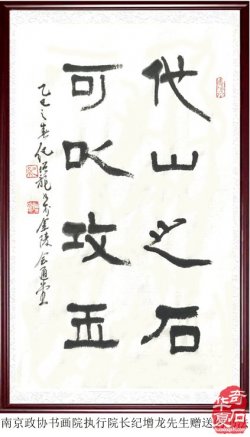 他山之石
可以攻玉
之春纪增龙书于金陵
南京政协书画院执行院长纪增龙先生赠送
华夏奇石